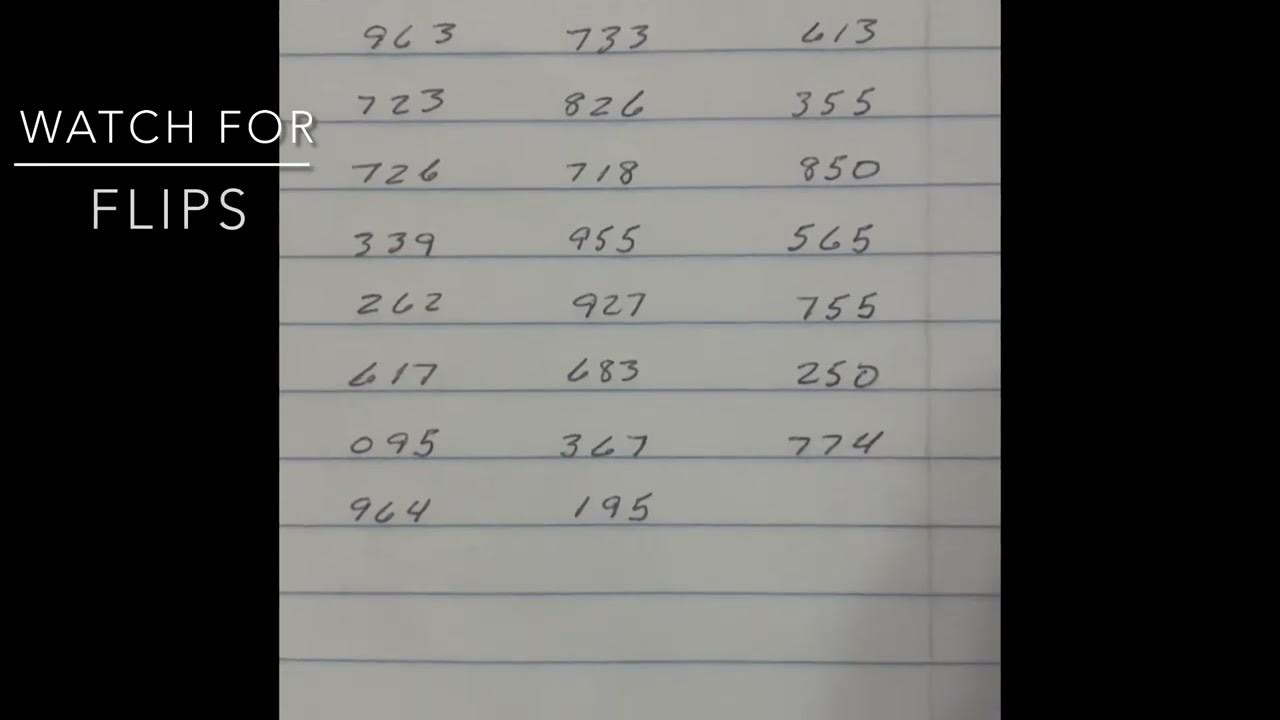 WATCH FOR
FLIPS
963 733 613
723 826 355
726 718 850
339 955 565
262 927 755
617 683 250
095 367 774
964 195